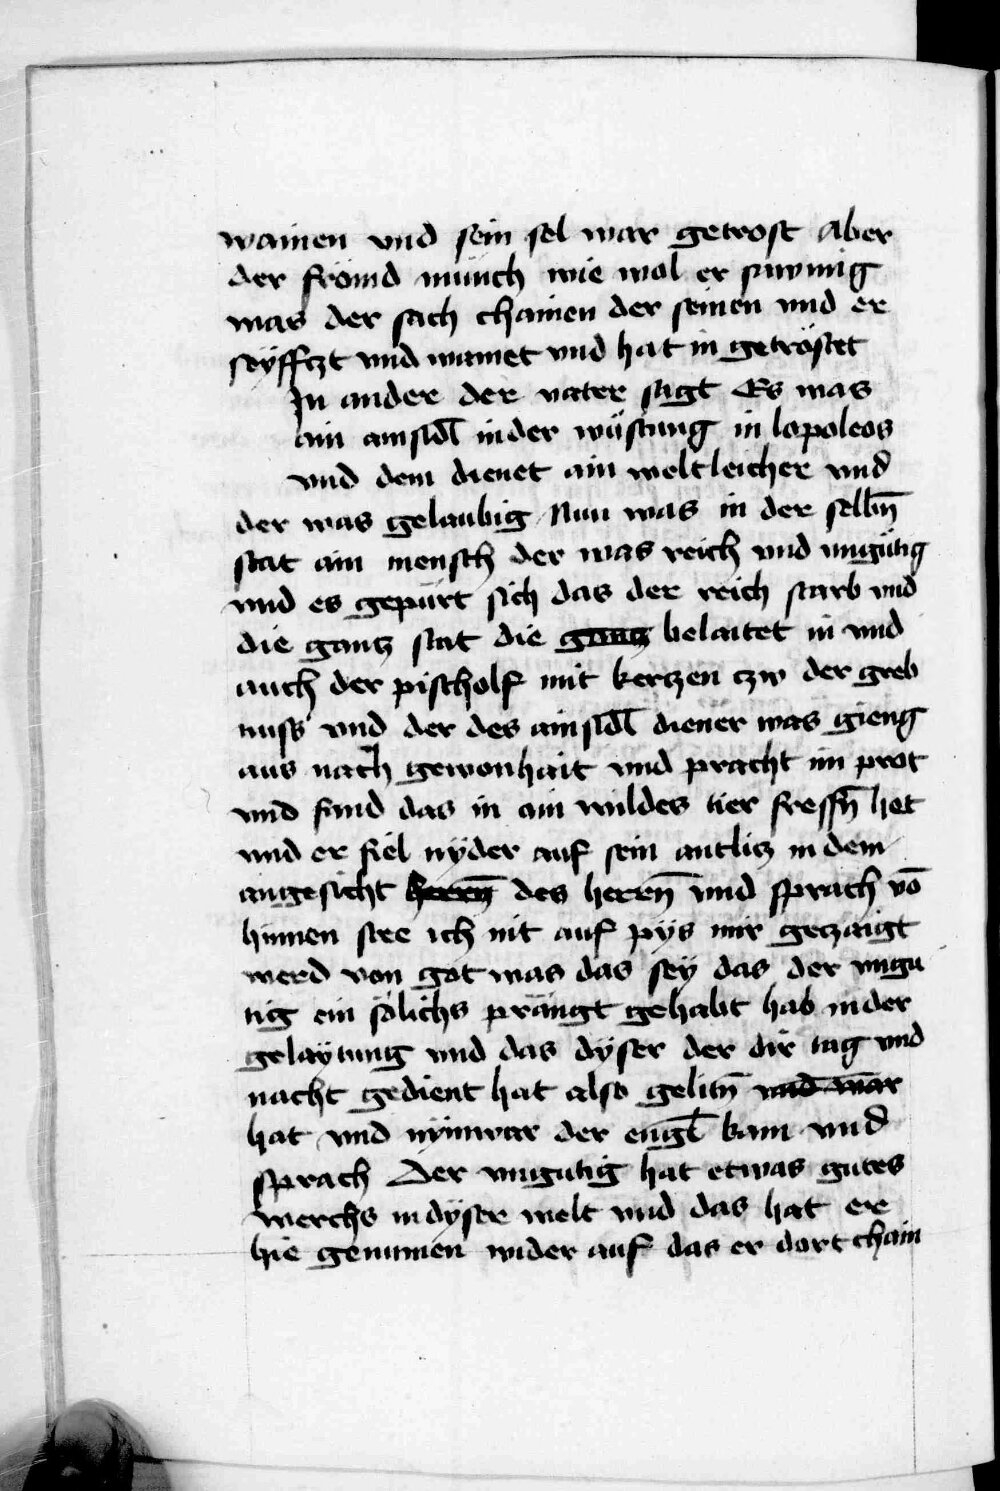 wainen vnd sein sel war getrost Aber
der frömd münch wie wol er
was der sach chainen der seinen vnd er
seÿfftzt vnd wainet vnd hat in getröstet
In ander der vater sagt Es was
ain ainsidl in der wüstung in lopoleos
vnd dem dienet ain weltleicher vnd
der was gelaubig Nun was in der selbn̄
stat ain mensch der was reich vnd vngütig
vnd es gepürt sich das der reich starb vnd
die gantz stat die gantz belaitet in vnd
auch der pischolf mit kertzen tzw der greb
nuss vnd der des ainsidl diener was gieng
aus nach gewonhait vnd pracht im prot
vnd fand das in ain wildes tier fressn̄ het
vnd er fiel nÿder auf sein antlitz in dem
angesicht herrn̄ des herrn̄ vnd sprach vō
hinnen stee ich nit auf pÿs mir getzaigt
werd von got was das seÿ das der vngu
tig ein sölichs prängt gehabt hab in der
gelaÿtung vnd das dÿser der dir tag vnd
nacht gedient hat also gelitn̄ vnd war
hat vnd nÿmwar der engel kam vnd
sprach Der vngutig hat etwas gutes
werchs in dÿser welt vnd das hat er
hie genumen wider auf das er dort chain